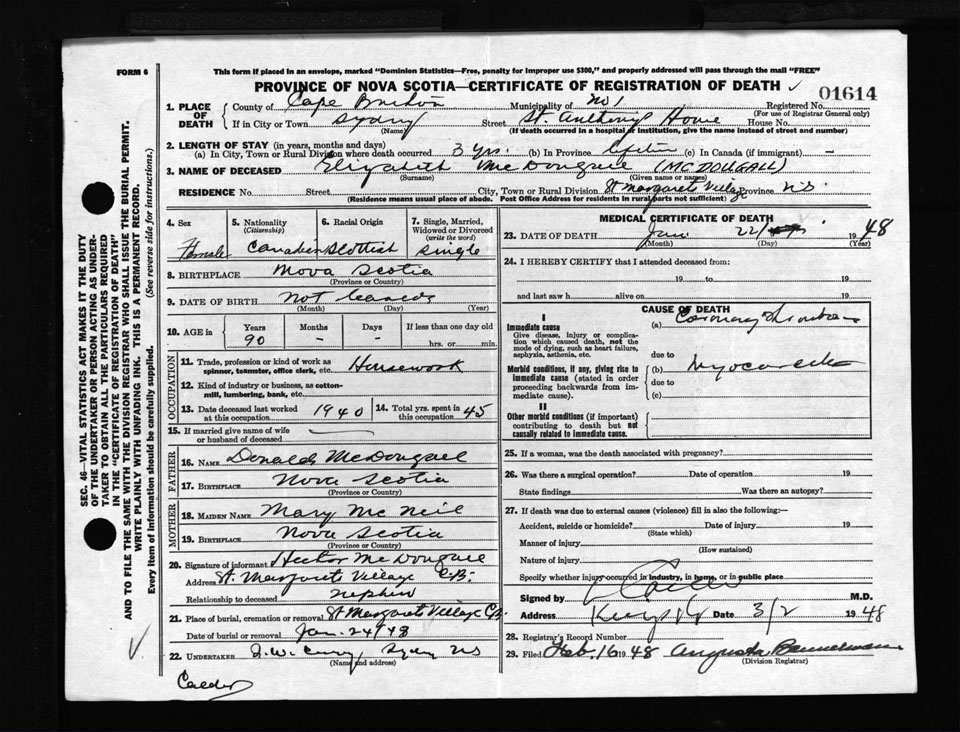 FORM 6
This form if placed in an envelope, marked "Dominion Statistics—Free, penalty for improper use $300," and properly addressed will pass through the mail "FREE"
PROVINCE OF NOVA SCOTIA—CERTIFICATE OF REGISTRATION OF DEATH
01614
1. PLACE OF DEATH
County of Cape Breton Municipality of No 1 Registered No.
(For use of Registrar General only)
If in City or Town Sydney Street St. Anthony's Home House No.
(Name) (If death occurred in a hospital or institution, give the name instead of street and number)
2. LENGTH OF STAY (in years, months and days)
(a) In City, Town or Rural Division where death occurred 3 yrs. (b) In Province Lifetime (c) In Canada (if immigrant) —
3. NAME OF DECEASED Elizabeth McDougall (MCDOUGALL)
(Surname) (Given name or names)
RESIDENCE No. Street City, Town or Rural Division St Margarets Village Province N.S.
(Residence means usual place of abode. Post Office Address for residents in rural parts not sufficient)
4. Sex Female
5. Nationality (Citizenship) Canadian
6. Racial Origin Scottish
7. Single, Married, Widowed or Divorced (write the word) Single
8. BIRTHPLACE Nova Scotia
(Province or Country)
9. DATE OF BIRTH Not
(Month) (Day) (Year)
10. AGE in Years Months Days If less than one day old
90 - - hrs. or min.
OCCUPATION
11. Trade, profession or kind of work as spinner, teamster, office clerk, etc. Housework
12. Kind of industry or business, as cotton-mill, lumbering, bank, etc.
13. Date deceased last worked at this occupation 1940 14. Total yrs. spent in this occupation 45
15. If married give name of wife or husband of deceased —
FATHER
16. NAME Donald McDougall
17. BIRTHPLACE Nova Scotia
(Province or Country)
MOTHER
18. MAIDEN NAME Mary McNeil
19. BIRTHPLACE Nova Scotia
(Province or Country)
20. Signature of informant Hector McDougall
Address St. Margarets Village C.B.
Relationship to deceased nephew
21. Place of burial, cremation or removal St Margarets Village C.B.
Date of burial or removal Jan. 24/48
22. UNDERTAKER Sydney NS
(Name and address)
MEDICAL CERTIFICATE OF DEATH
23. DATE OF DEATH Jan 22 1948
(Month) (Day) (Year)
24. I HEREBY CERTIFY that I attended deceased from:
19 to 19
and last saw h alive on 19
CAUSE OF DEATH
I
Immediate cause
Give disease, injury or complication which caused death, not the mode of dying, such as heart failure, asphyxia, asthenia, etc.
(a) Coronary Thrombosis
due to
Morbid conditions, if any, giving rise to immediate cause (stated in order proceeding backwards from immediate cause).
(b) Myocarditis
due to
(c)
II
Other morbid conditions (if important) contributing to death but not causally related to immediate cause.
25. If a woman, was the death associated with pregnancy?
26. Was there a surgical operation? Date of operation 19
State findings Was there an autopsy?
27. If death was due to external causes (violence) fill in also the following:—
Accident, suicide or homicide? Date of injury 19
(State which)
Manner of injury
(How sustained)
Nature of injury
Specify whether injury occurred in industry, in home, or in public place
Signed by M.D.
Address Date 3/2 1948
28. Registrar's Record Number
29. Filed Feb. 16 1948 Augusta Bannerman
(Division Registrar)
Calder
SEC. 46—VITAL STATISTICS ACT MAKES IT THE DUTY OF THE UNDERTAKER OR PERSON ACTING AS UNDERTAKER TO OBTAIN ALL THE PARTICULARS REQUIRED IN THE "CERTIFICATE OF REGISTRATION OF DEATH" AND TO FILE THE SAME WITH THE DIVISION REGISTRAR WHO SHALL ISSUE THE BURIAL PERMIT.
WRITE PLAINLY WITH UNFADING INK. THIS IS A PERMANENT RECORD.
Every item of information should be carefully supplied. (See reverse side for instructions.)